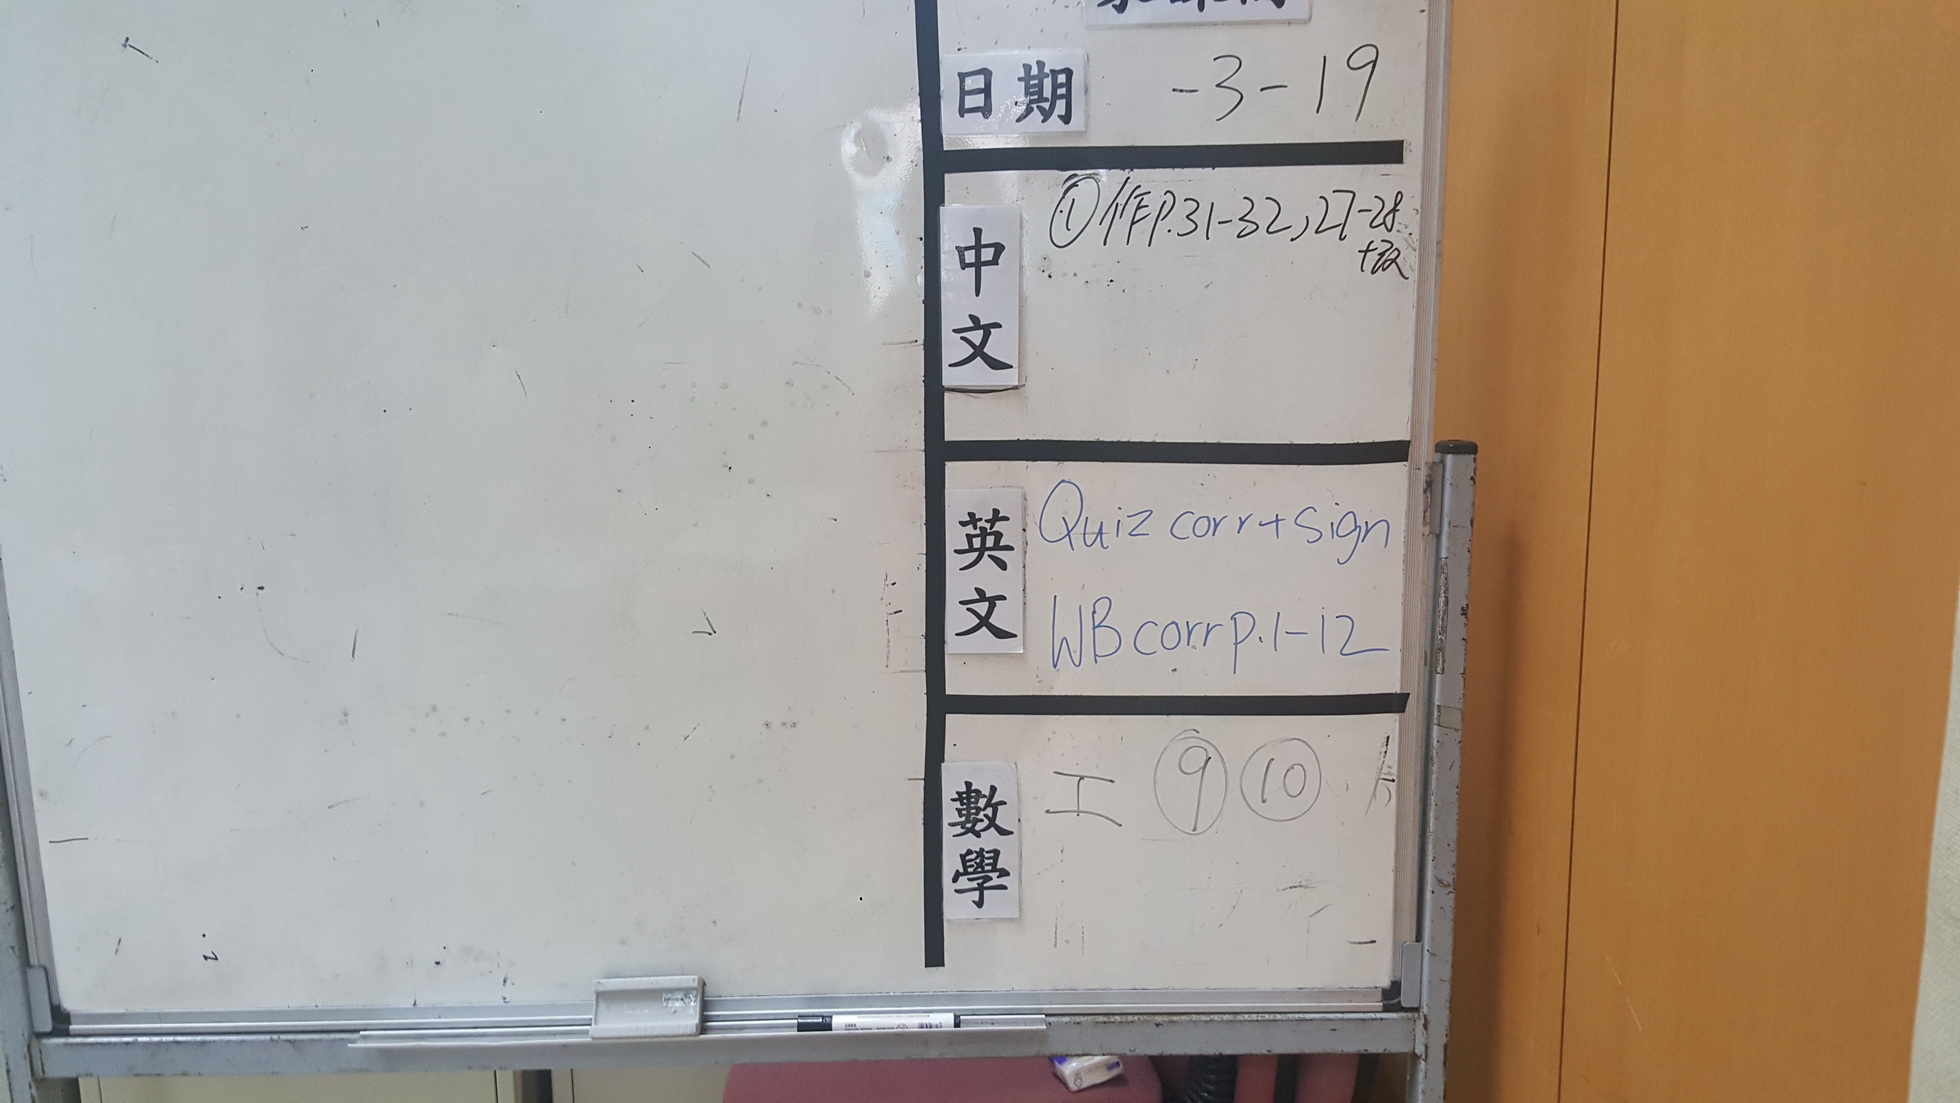 日期 -3-19
中文
①作P.31-32,27-28
+改
英文
Quiz corr+sign
WB corr p.1-12
數學
工 ⑨ ⑩